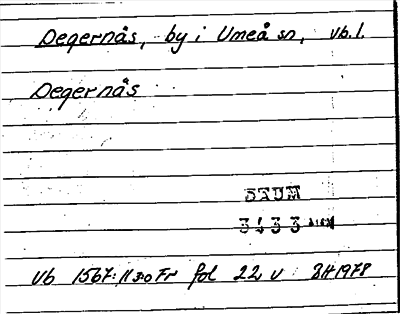 Degernås, by i Umeå sn, vb. l.
Degernås
DAUM
3433
Vb 1567: 11 Fr fol 22 v BH 1978